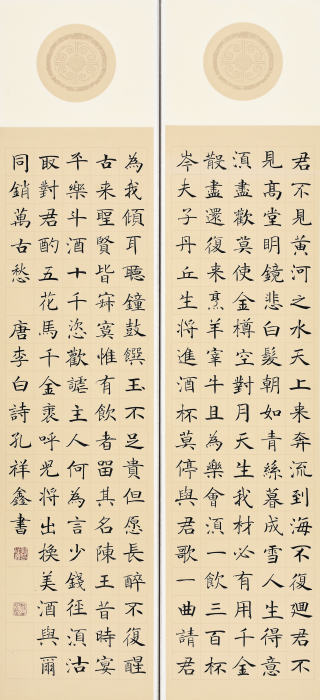 君不見黃河之水天上来奔流到海不復廻君不
見高堂明鏡悲白髮朝如青絲暮成雪人生得意
湏盡歡莫使金樽空對月天生我材必有用千金
散盡還復来烹羊宰牛且為樂會湏一飲三百杯
岑夫子丹丘生将進酒杯莫停與君歌一曲請君
為我傾耳聽鐘鼓饌玉不足貴但愿長醉不復醒
古来聖賢皆寂寞惟有飲者畱其名陳王昔時宴
平樂斗酒十千恣歡謔主人何為言少錢径湏沽
取對君酌五花馬千金裘呼児将出換美酒與爾
同銷萬古愁 唐李白詩孔祥鑫書